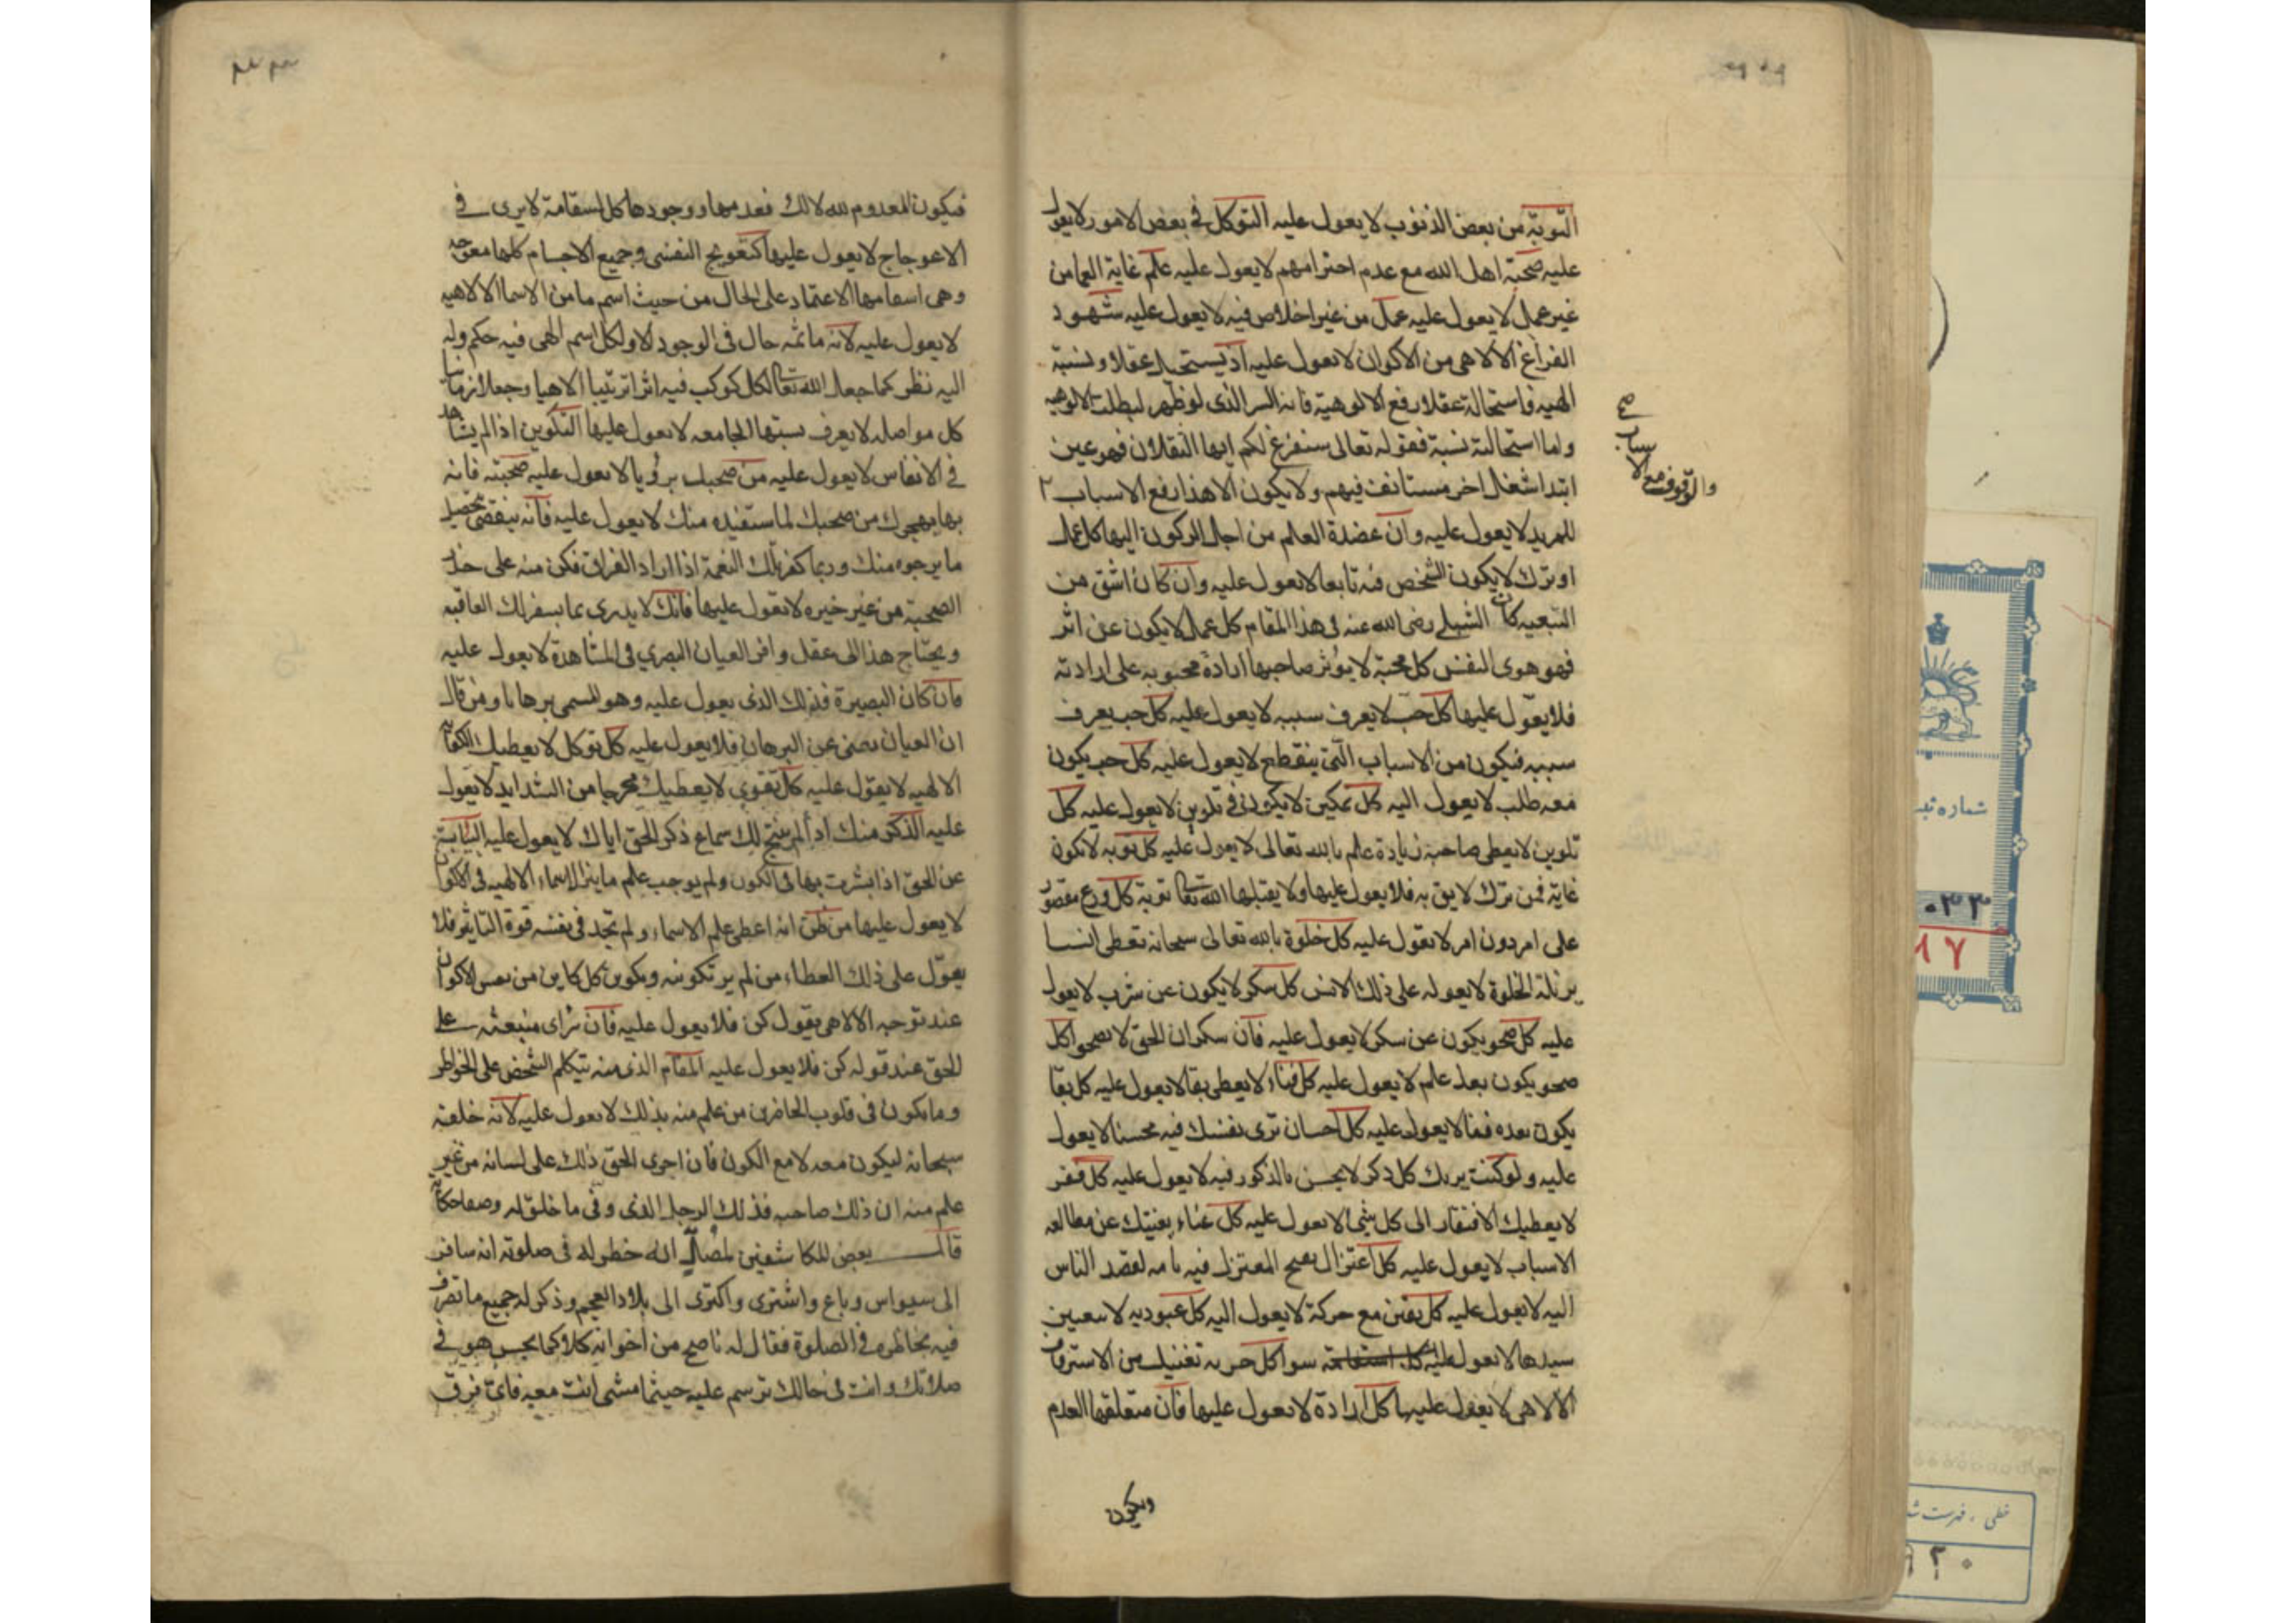 التوبة من بعض الذنوب لا يعول عليه التوكل في بعض الامور لا يعول
عليه صحبة اهل الله مع عدم احترامهم لا يعول عليه علم غاية العما من
غير عمل لا يعول عليه عمل من غير اخلاص فيه لا يعول عليه شهود
الفراغ الالاهي من الاكوان لا يعول عليه اذ يستحيل عقلا ونسبة
الهية فاستحالة عقلا رفع الالوهية فانه السر الذي لو ظهر لبطلت الالوهية
واما استحالته نسبة فقوله تعالى سنفرغ لكم ايها الثقلان فهو عين
ابتدا شغل اخر مستانف فيهم ولا يكون الا هذا رفع الاسباب
والوقوف مع الاسباب صح
للمريد لا يعول عليه وان عضدة العلم من اجل الركون اليها كل عمل
او ترك لا يكون الشخص فيه تابعا لا يعول عليه وان كان اشق من
التبعيه كان الشبلي رضى الله عنه في هذا المقام كل عمل لا يكون عن اثر
فهو هوى النفس كل محبة لا يوثر صاحبها ارادة محبوبه على ارادته
فلا يعول عليها كل حب لا يعرف سببه لا يعول عليه كل حب يعرف
سببه فيكون من الاسباب التي ينقطع لا يعول عليه كل حب يكون
معه طلب لا يعول اليه كل تمكين لا يكون في تلوين لا يعول عليه كل
تلوين لا يعطي صاحبه زيادة علم بالله تعالى لا يعول عليه كل توبه لا تكون
غاية فمن ترك لا يق به فلا يعول عليها ولا يقبلها الله تعا توبة كل ورع مقصور
على امر دون امر لا يعول عليه كل خلوة بالله تعالى سبحانه تعطى انسا
يزيله الخلوة لا يعوله على ذلك الانس كل سكر لا يكون عن شرب لا يعول
عليه كل صحو يكون عن سكر لا يعول عليه فان سكران الحق لا يصحو كل
صحو يكون بعد علم لا يعول عليه كل فناء لا يعطى بقا لا يعول عليه كل بقا
يكون بعده فنا لا يعول عليه كل احسان ترى نفسك فيه محسنا لا يعول
عليه ولو كنت بربك كل ذكر لا يحسن بالذكور فيه لا يعول عليه كل فقر
لا يعطيك الافتقار الى كل شي لا يعول عليه كل غناء يغنيك عن مطالعه
الاسباب لا يعول عليه كل اعتزال يصح المعتزل فيه بامه لقصد الناس
اليه لا يعول عليه كل يقين مع حركة لا يعول اليه كل عبوديه لا بتعيين
سيدها لا يعول عليه سوا كل حريه تغنيك من الاسترقاق
الالاهي لا يعول عليها كل ارادة لا يعول عليها فان متعلقها العدم
ويكون
فيكون المعدوم لله لا لك فعدمها ووجودها كل استقامة لا يرى في
الاعوجاج لا يعول عليها كتعويج القسي وجميع الاجسام كلها معوجه
وهي استقامتها الاعتماد على الحال من حيث اسم ما من الاسما الالاهيه
لا يعول عليه لانه ما ثمه حال في الوجود الا ولكل اسم الهي فيه حكم وله
اليه نظر كما جعل الله تعا لكل كوكب فيه اثرا ترتيبا الاهيا وجعلا زمانيا
كل مواصله لا يعرف نسبتها الجامعه لا يعول عليها التكوين اذا لم يشاهد
في الانفاس لا يعول عليه من صحبك برؤيا لا يعول عليه صحبته فانه
بها يهجرك من صحبك لما استفيده منك لا يعول عليه فانه ينقضي بتحصيل
ما يرجوه منك وربما كفر تلك النعمة اذا اراد الفراق فكن منه على حذر
الصحبة من غير خبره لا يعول عليها فانك لا يدرى بما يسفر لك العاقبه
ويحتاج هذا الى عقل وافر العيان البصري في المشاهدة لا يعول عليه
فان كان البصيرة فذلك الذي يعول عليه وهو المسمى برهانا ومن قال
ان العيان يغني عن البرهان فلا يعول عليه كل توكل لا يعطيك الكفاية
الالهيه لا يعول عليه كل تقوى لا يعطيك مخرجا من الشدايد لا يعول
عليه الذكر منك اذا لم ينتج لك سماع ذكر الحق اياك لا يعول عليه النيابة
عن الحق اذا بشرت بها في الكون ولم يوجب علم ما ينزل الاسماء الالهيه في الاكوان
لا يعول عليها من ظن انه اعطى علم الاسماء ولم تجد في نفسه قوة التاثير فلا
يعول على ذلك العطاء من لم ير تكوينه ويكون كل كاين من نفس الاكوان
عند توجيه الالاهي يقول كن فلا يعول عليه فان تراى منبعثه على
الحق عند قوله كن فلا يعول عليه المقام الذي منه يتكلم الشخص على الخواطر
وما يكون في قلوب الحاضرين من علم منه بذلك لا يعول عليه لانه خلقه
سبحانه ليكون معه لا مع الكون فان اجرى الحق ذلك على لسانه من غير
علم منه ان ذلك صاحبه فذلك الرجل الذي وفى ما خلق له وصفا حكاية
قال بعض المكاشفين لمصلي انه خطر له في صلوته انه سافر
الى سيواس وباع واشترى واكترى الى بلاد العجم وذكر له جميع ما تصرف
فيه بخاطره في الصلوة فقال له ناصح من اخوانه كلاكما بحس هو في
صلاتك وانت في حالك ترسم عليه حيثما مشى انت معه فاي فرق
شماره ثبت
خطی ، فهرست